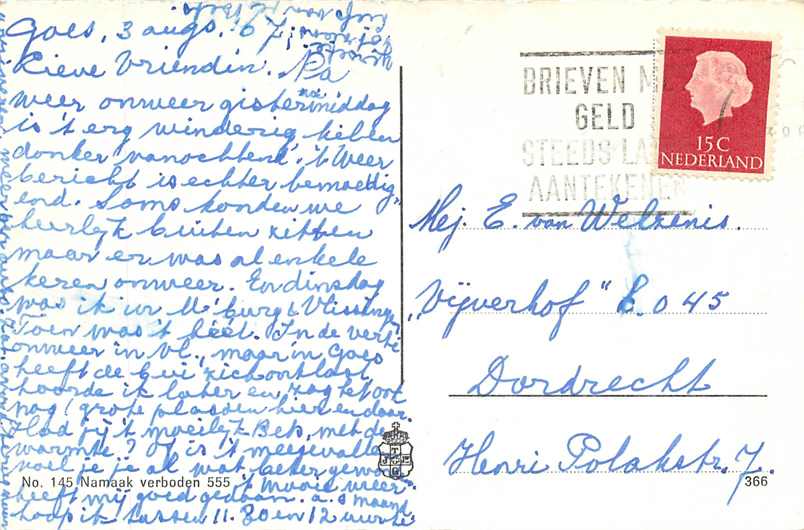 Goes, 3 augs. 67,
Lieve Vriendin. Na
weer onweer gistermiddag
is 't erg winderig
donker vanochtend. 't Weer
bericht is echter bemoedig
end. Soms konden we
heerlijk buiten zitten
maar er was al enkele
keren onweer. En dinsdag
was ik in M'burg & Vlissing.
Toen was 't héét. In de verte
onweer in Vl., maar in Goes
heeft de bui zich ontlast
hoorde ik later en zag ik ook
nog! grote plassen hier en daar.
Had jij 't moeilijk Bets, met de
warmte? Of is 't meegevallen
voel je je al wat beter
't mooie weer
heeft mij goed gedaan. a.s. maand.
hoop ik tussen 11.30 en 12 uur te
BRIEVEN
GELD
STEEDS
AANTEKENEN
15 C
NEDERLAND
Mej. E. van Welzenis.
„Vijverhof" k.o 45
Dordrecht
Henri Polakstr. 7.
No. 145 Namaak verboden 555
366